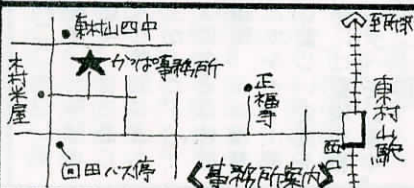 東村山四中
至所沢
かっぱ事務所
木村米屋
正福寺
東村山駅
西口
回田バス停
《事務所案内》